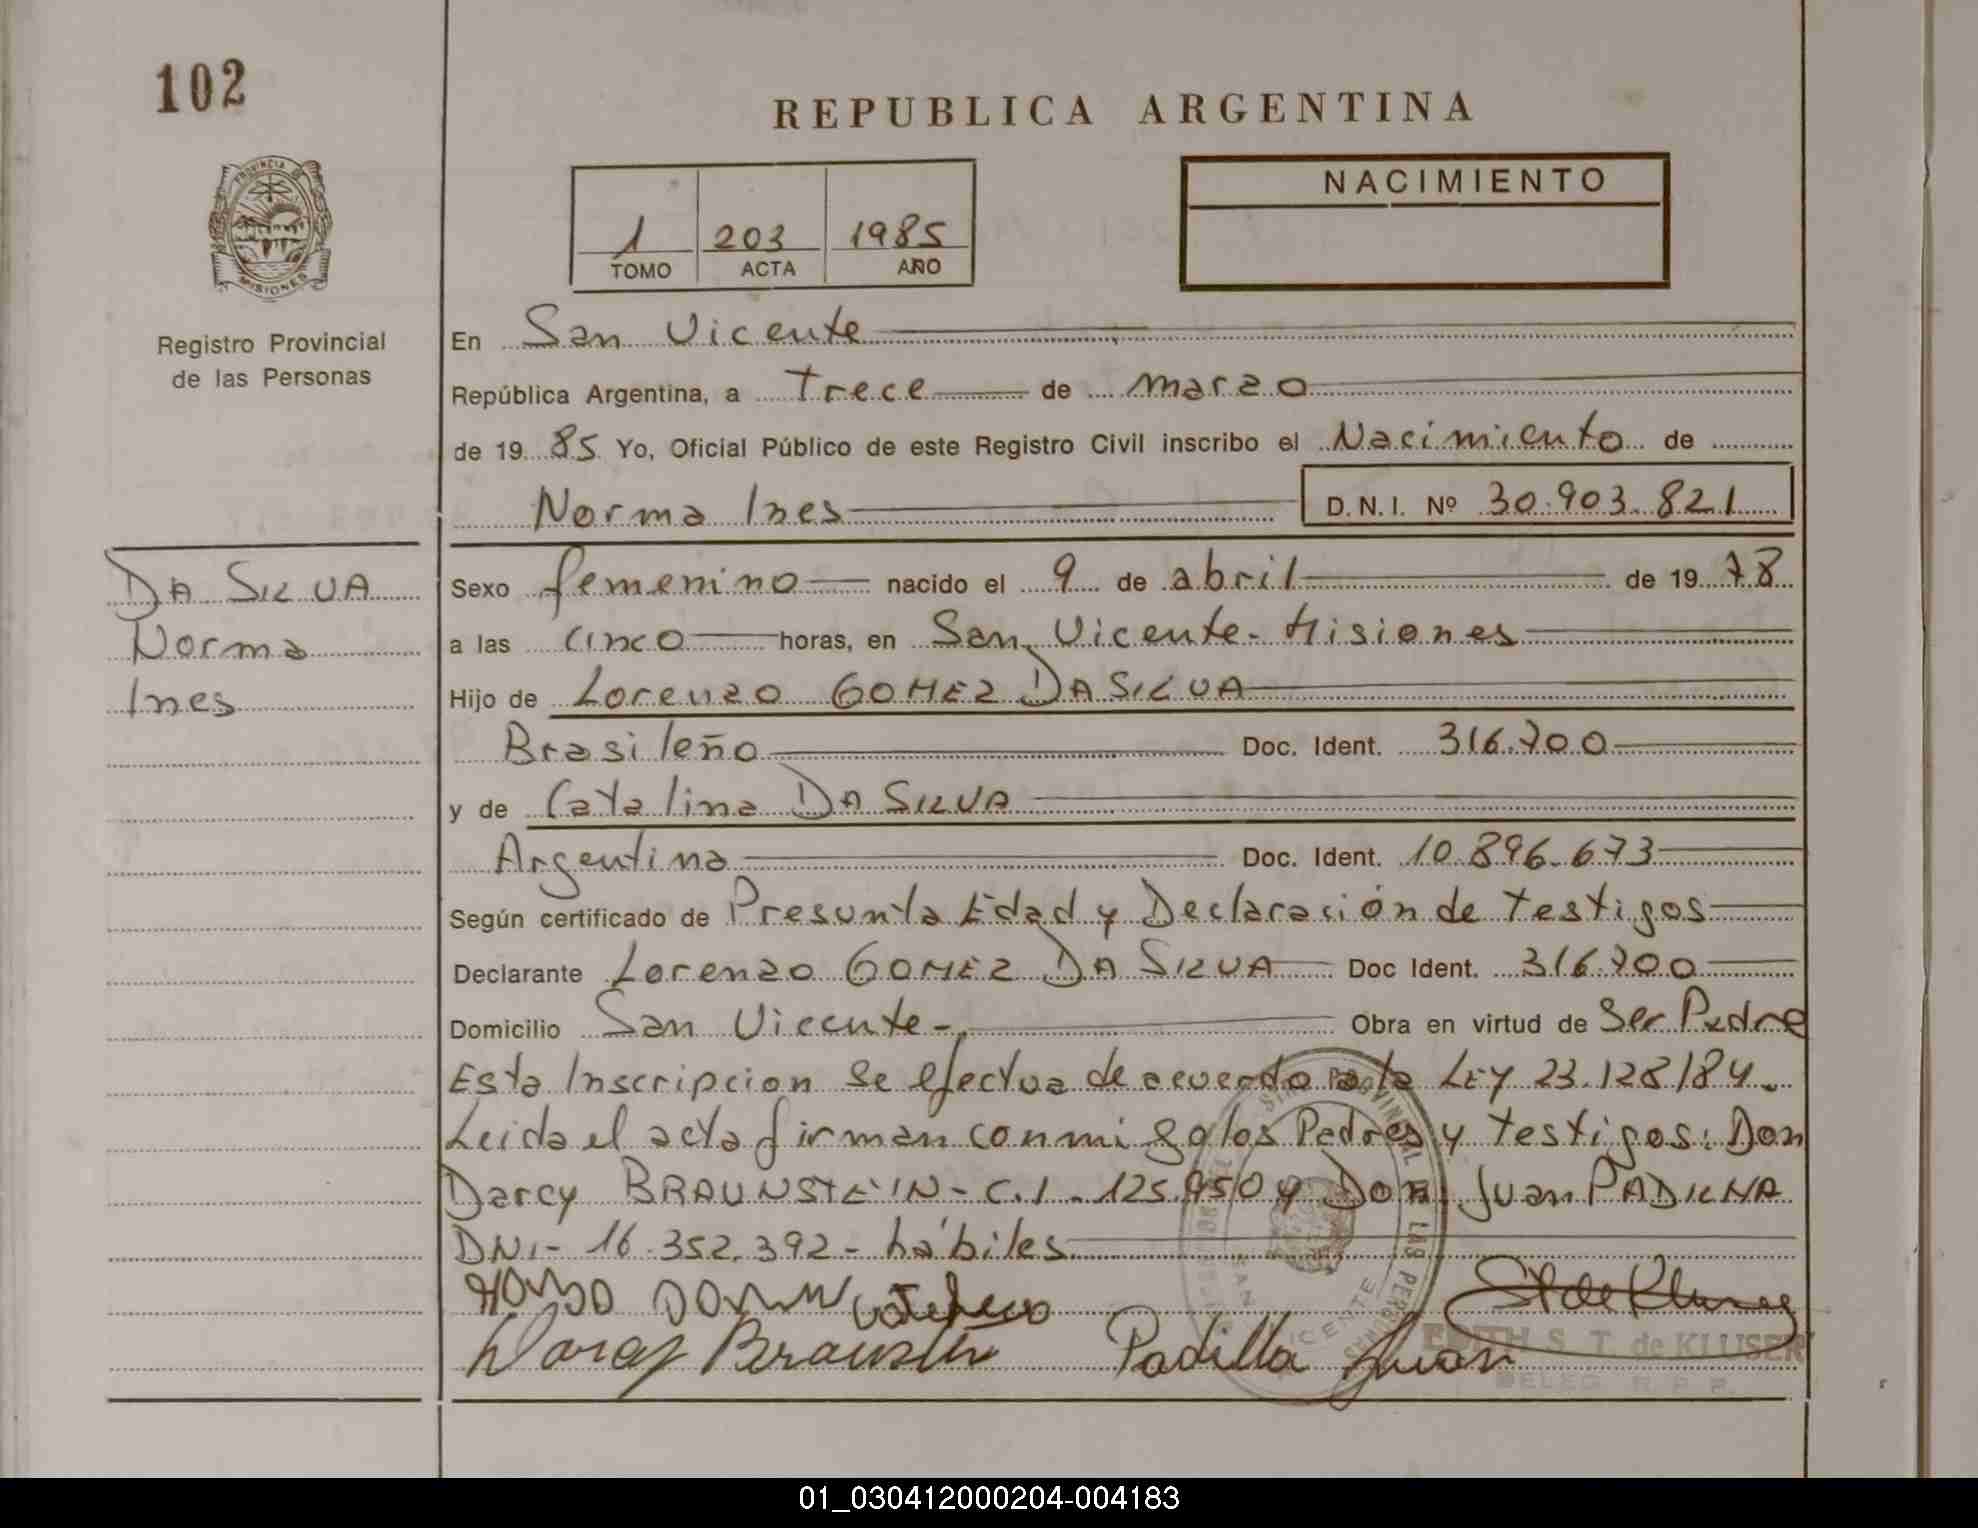 102
REPUBLICA ARGENTINA
NACIMIENTO
1 203 1985
TOMO ACTA AÑO
PROVINCIA
MISIONES
Registro Provincial
de las Personas
En San Vicente
República Argentina, a Trece de marzo
de 19 85 Yo, Oficial Público de este Registro Civil inscribo el Nacimiento de
Norma Ines D.N.I. Nº 30.903.821
DA SILVA
Norma
Ines
Sexo femenino nacido el 9 de abril de 19 78
a las cinco horas, en San Vicente - Misiones
Hijo de Lorenzo GOMEZ DA SILVA
Brasileño Doc. Ident. 316.700
y de Catalina DA SILVA
Argentina Doc. Ident. 10.896.673
Según certificado de Presunta Edad y Declaración de Testigos
Declarante Lorenzo GOMEZ DA SILVA Doc Ident. 316.700
Domicilio San Vicente - Obra en virtud de Ser Padre
Esta Inscripcion se efectua de acuerdo a la LEY 23.128/84.
Leida el acta firman conmigo los Padres y testigos: Don
Darcy BRAUNSTEIN - C.I. 125.950 y Don Juan PADILHA
DNI - 16.352.392 - hábiles
Padilla Juan
EDITH S. T. de KLUSER
DELEG. R. P. P.
01_030412000204-004183